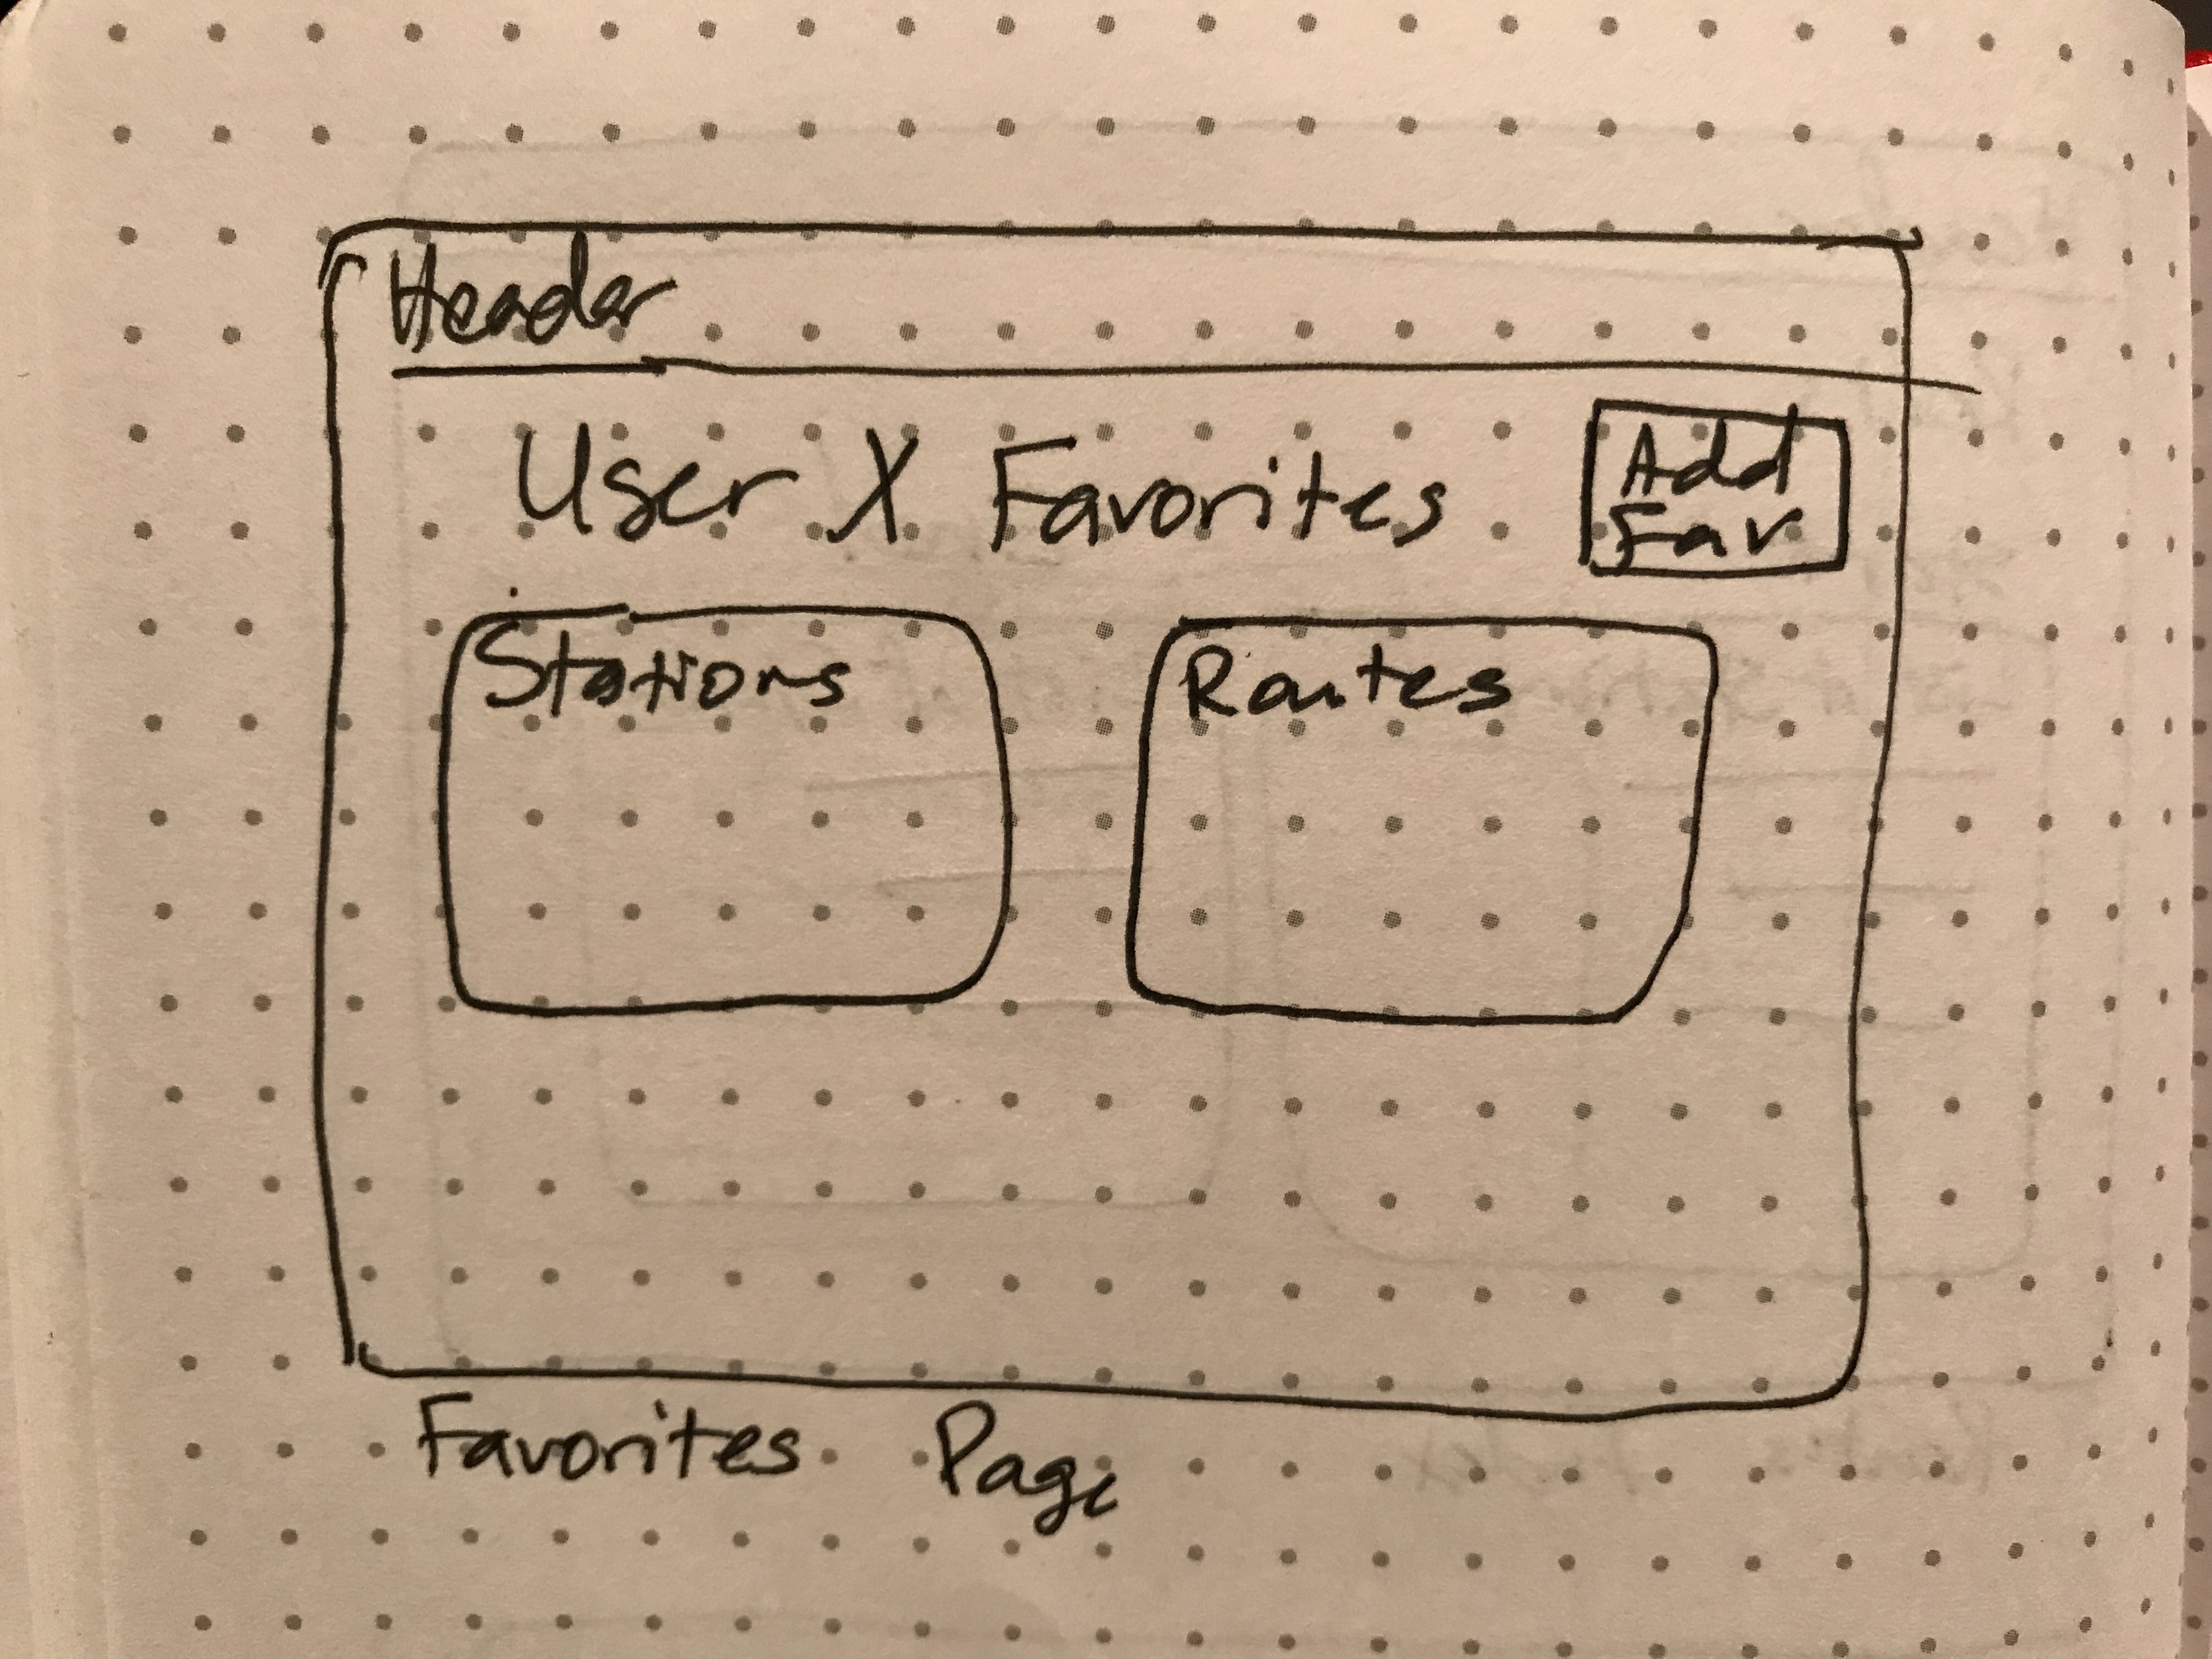 Header
User X Favorites
Add
Fav
Stations
Routes
Favorites Page